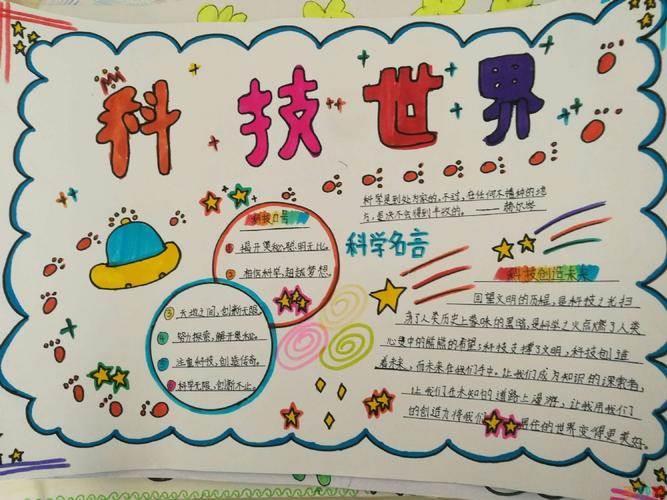 科技世界
科学是到处为家的,不过,在任何不播种的地
方,是决不会得到丰收的。——赫尔岑
科学名言
科技口号
① 揭开奥秘,聪明无比。
② 相信科学,超越梦想。
③ 天地之间,创新无限。
④ 努力探索,解开奥秘。
⑤ 注重科技,创造传奇。
⑥ 科学无限,创新不止。
科技创造未来
回望文明的历程,是科技之光扫
荡了人类历史上蒙昧的黑路,是科学之火点燃了人类
心灵中的熊熊的希望;科技支撑了文明,科技创造
着未来,而未来在我们手中。让我们成为知识的探索者,
让我们在未知的道路上漫游,让我用我们
的创造力将我们 居住的世界变得更美好。